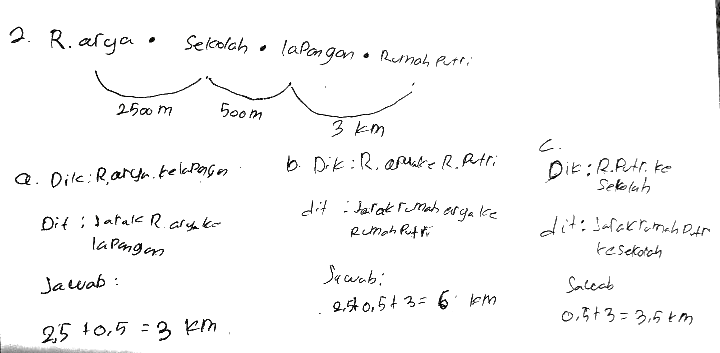 2. R. arya • Sekolah • lapangan • Rumah Putri
2500 m 500 m 3 km
a. Dik: R. arya. ke lapangan
Dit: Jarak R. arya ke lapangan
Jawab:
2,5 + 0,5 = 3 km.
b. Dik: R. arya ke R. Putri
dit: Jarak rumah arya ke Rumah Putri
Jawab:
2,5 + 0,5 + 3 = 6 km
c.
Dik: R. Putri. ke Sekolah
dit: Jarak rumah Putri ke sekolah
Jawab
0,5 + 3 = 3,5 km